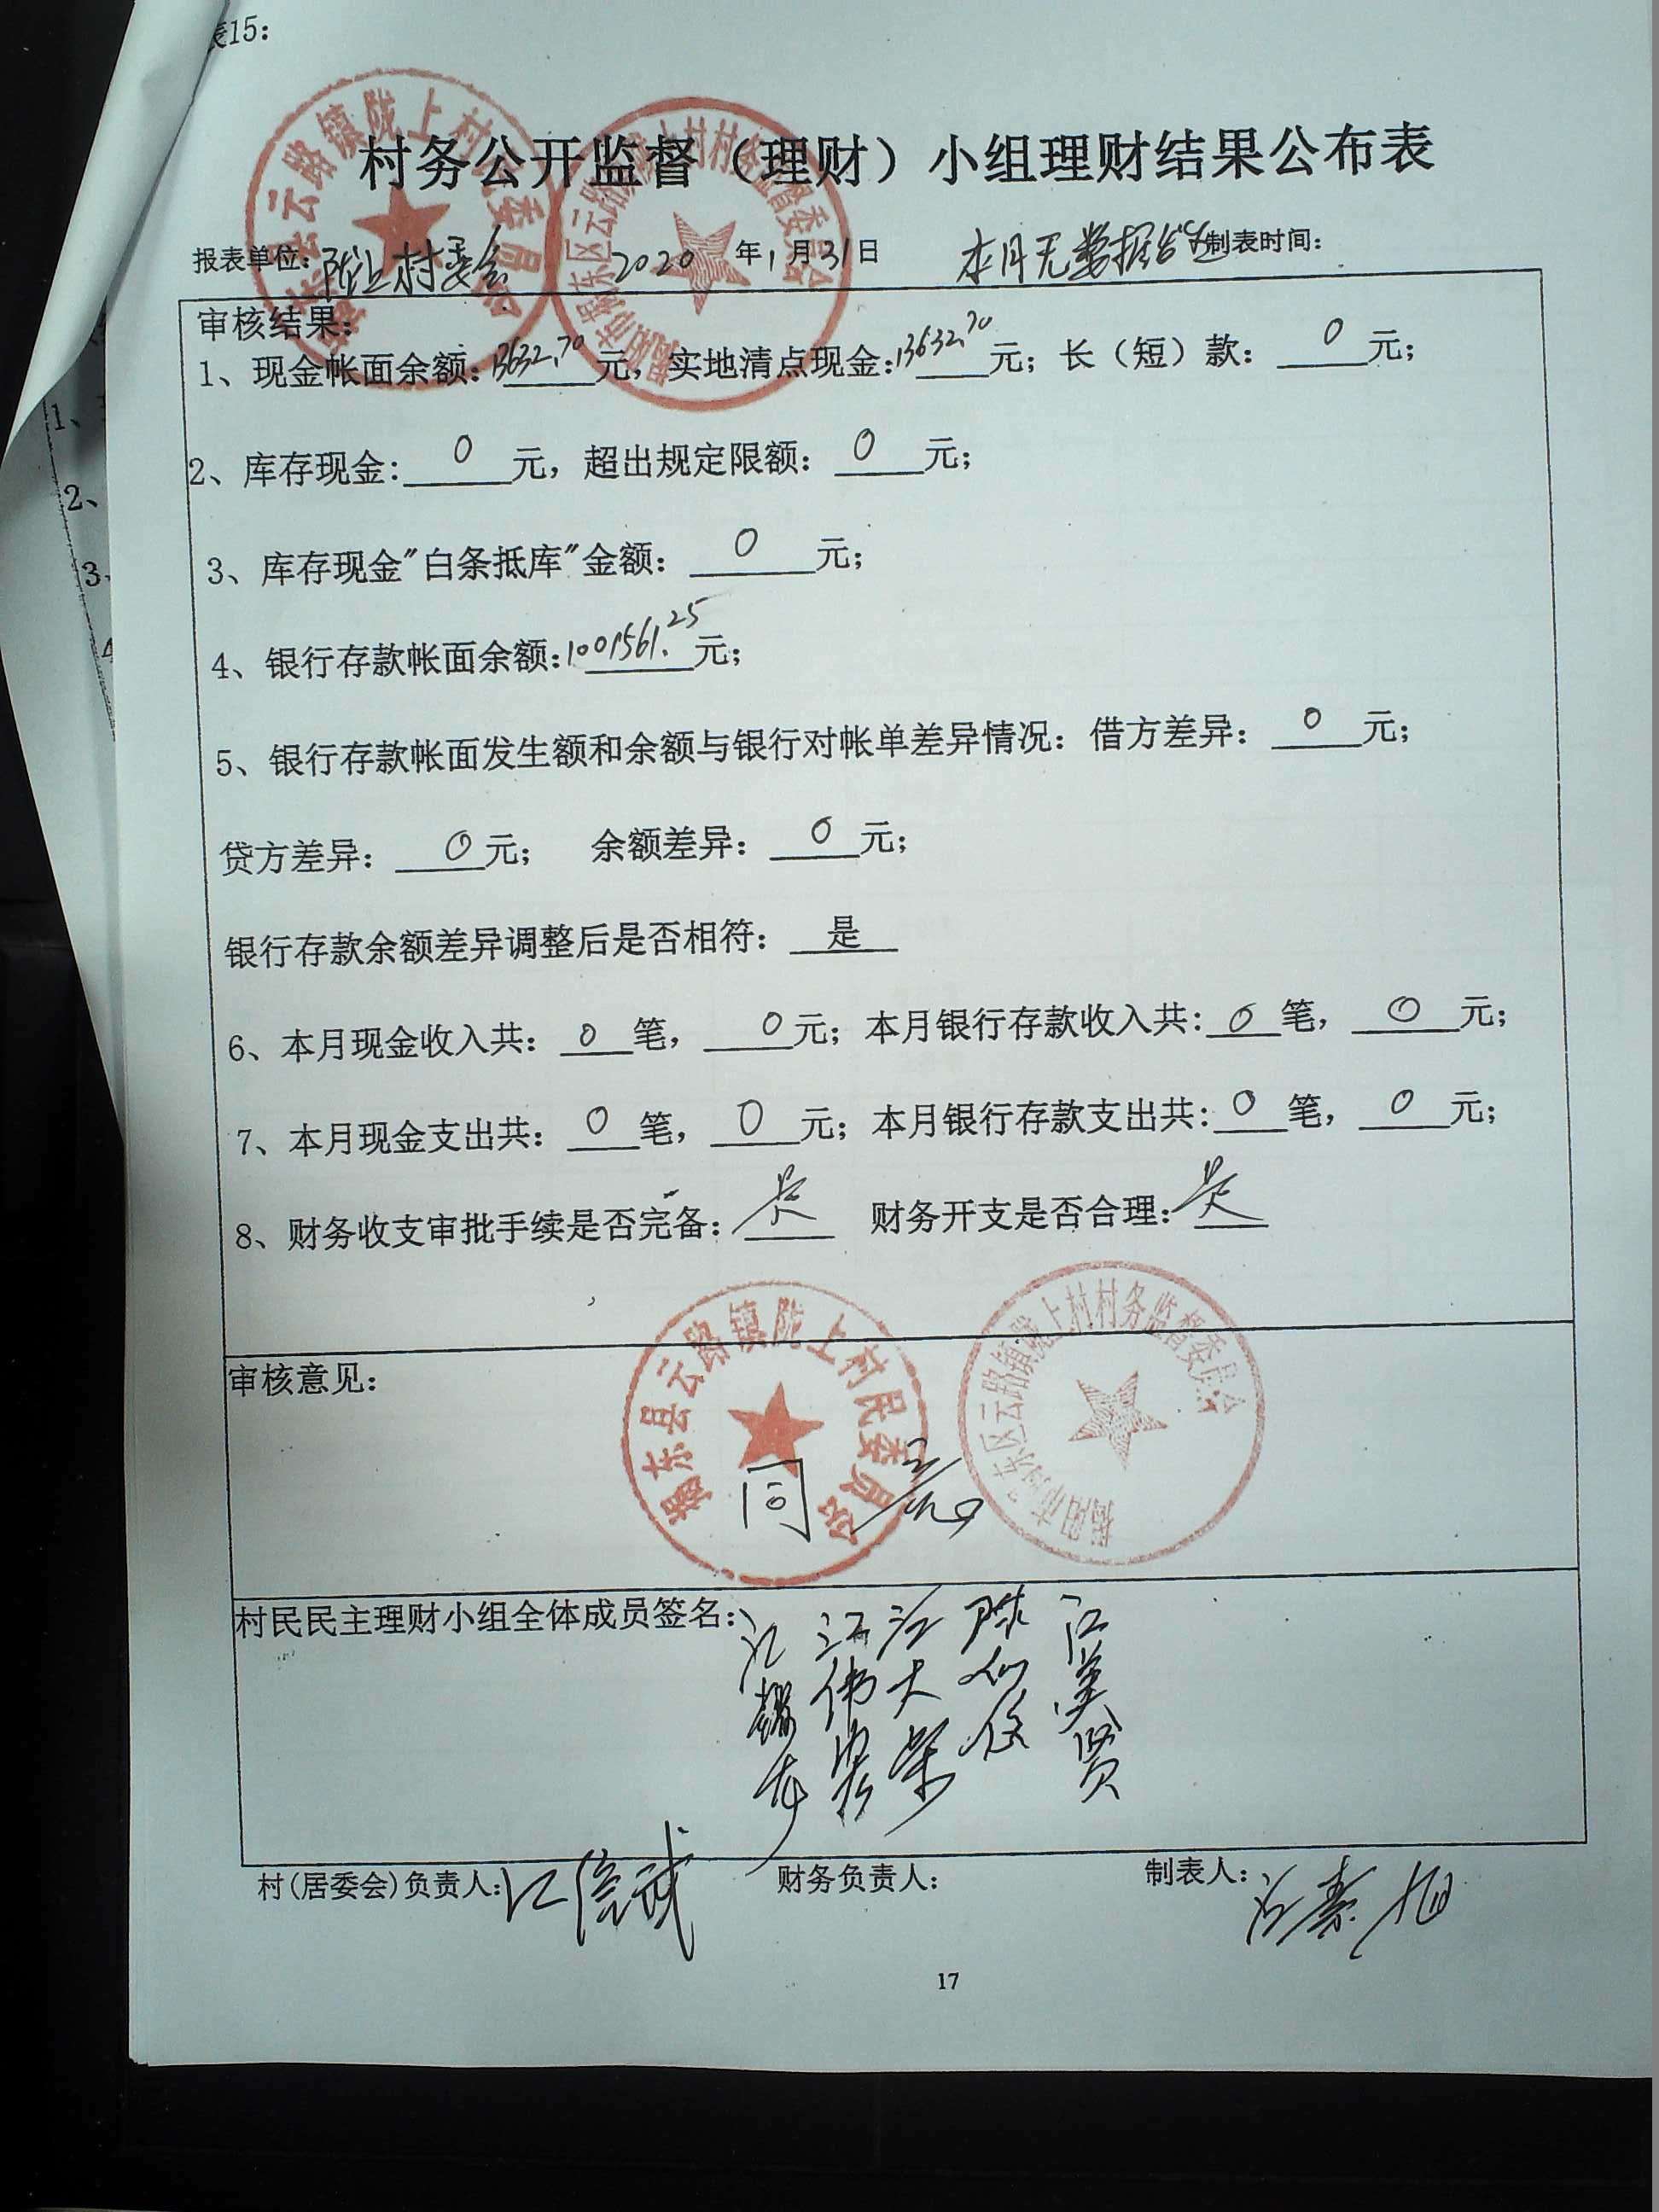 表15：
村务公开监督（理财）小组理财结果公布表
报表单位：陇上村委会 2020 年1月31日 本月无数据 制表时间：
审核结果：
1、现金帐面余额：13632.70元，实地清点现金：13632.70元；长（短）款：0元；
2、库存现金：0元，超出规定限额：0元；
3、库存现金"白条抵库"金额：0元；
4、银行存款帐面余额：1001561.25元；
5、银行存款帐面发生额和余额与银行对帐单差异情况：借方差异：0元；
贷方差异：0元； 余额差异：0元；
银行存款余额差异调整后是否相符：是
6、本月现金收入共：0笔，0元；本月银行存款收入共：0笔，0元；
7、本月现金支出共：0笔，0元；本月银行存款支出共：0笔，0元；
8、财务收支审批手续是否完备：是 财务开支是否合理：是
揭东县云路镇陇上村民委员会
揭阳市揭东区云路镇陇上村村务监督委员会
审核意见：
同意
村民民主理财小组全体成员签名：
江大荣 江美贤
村(居委会)负责人： 财务负责人： 制表人：
17